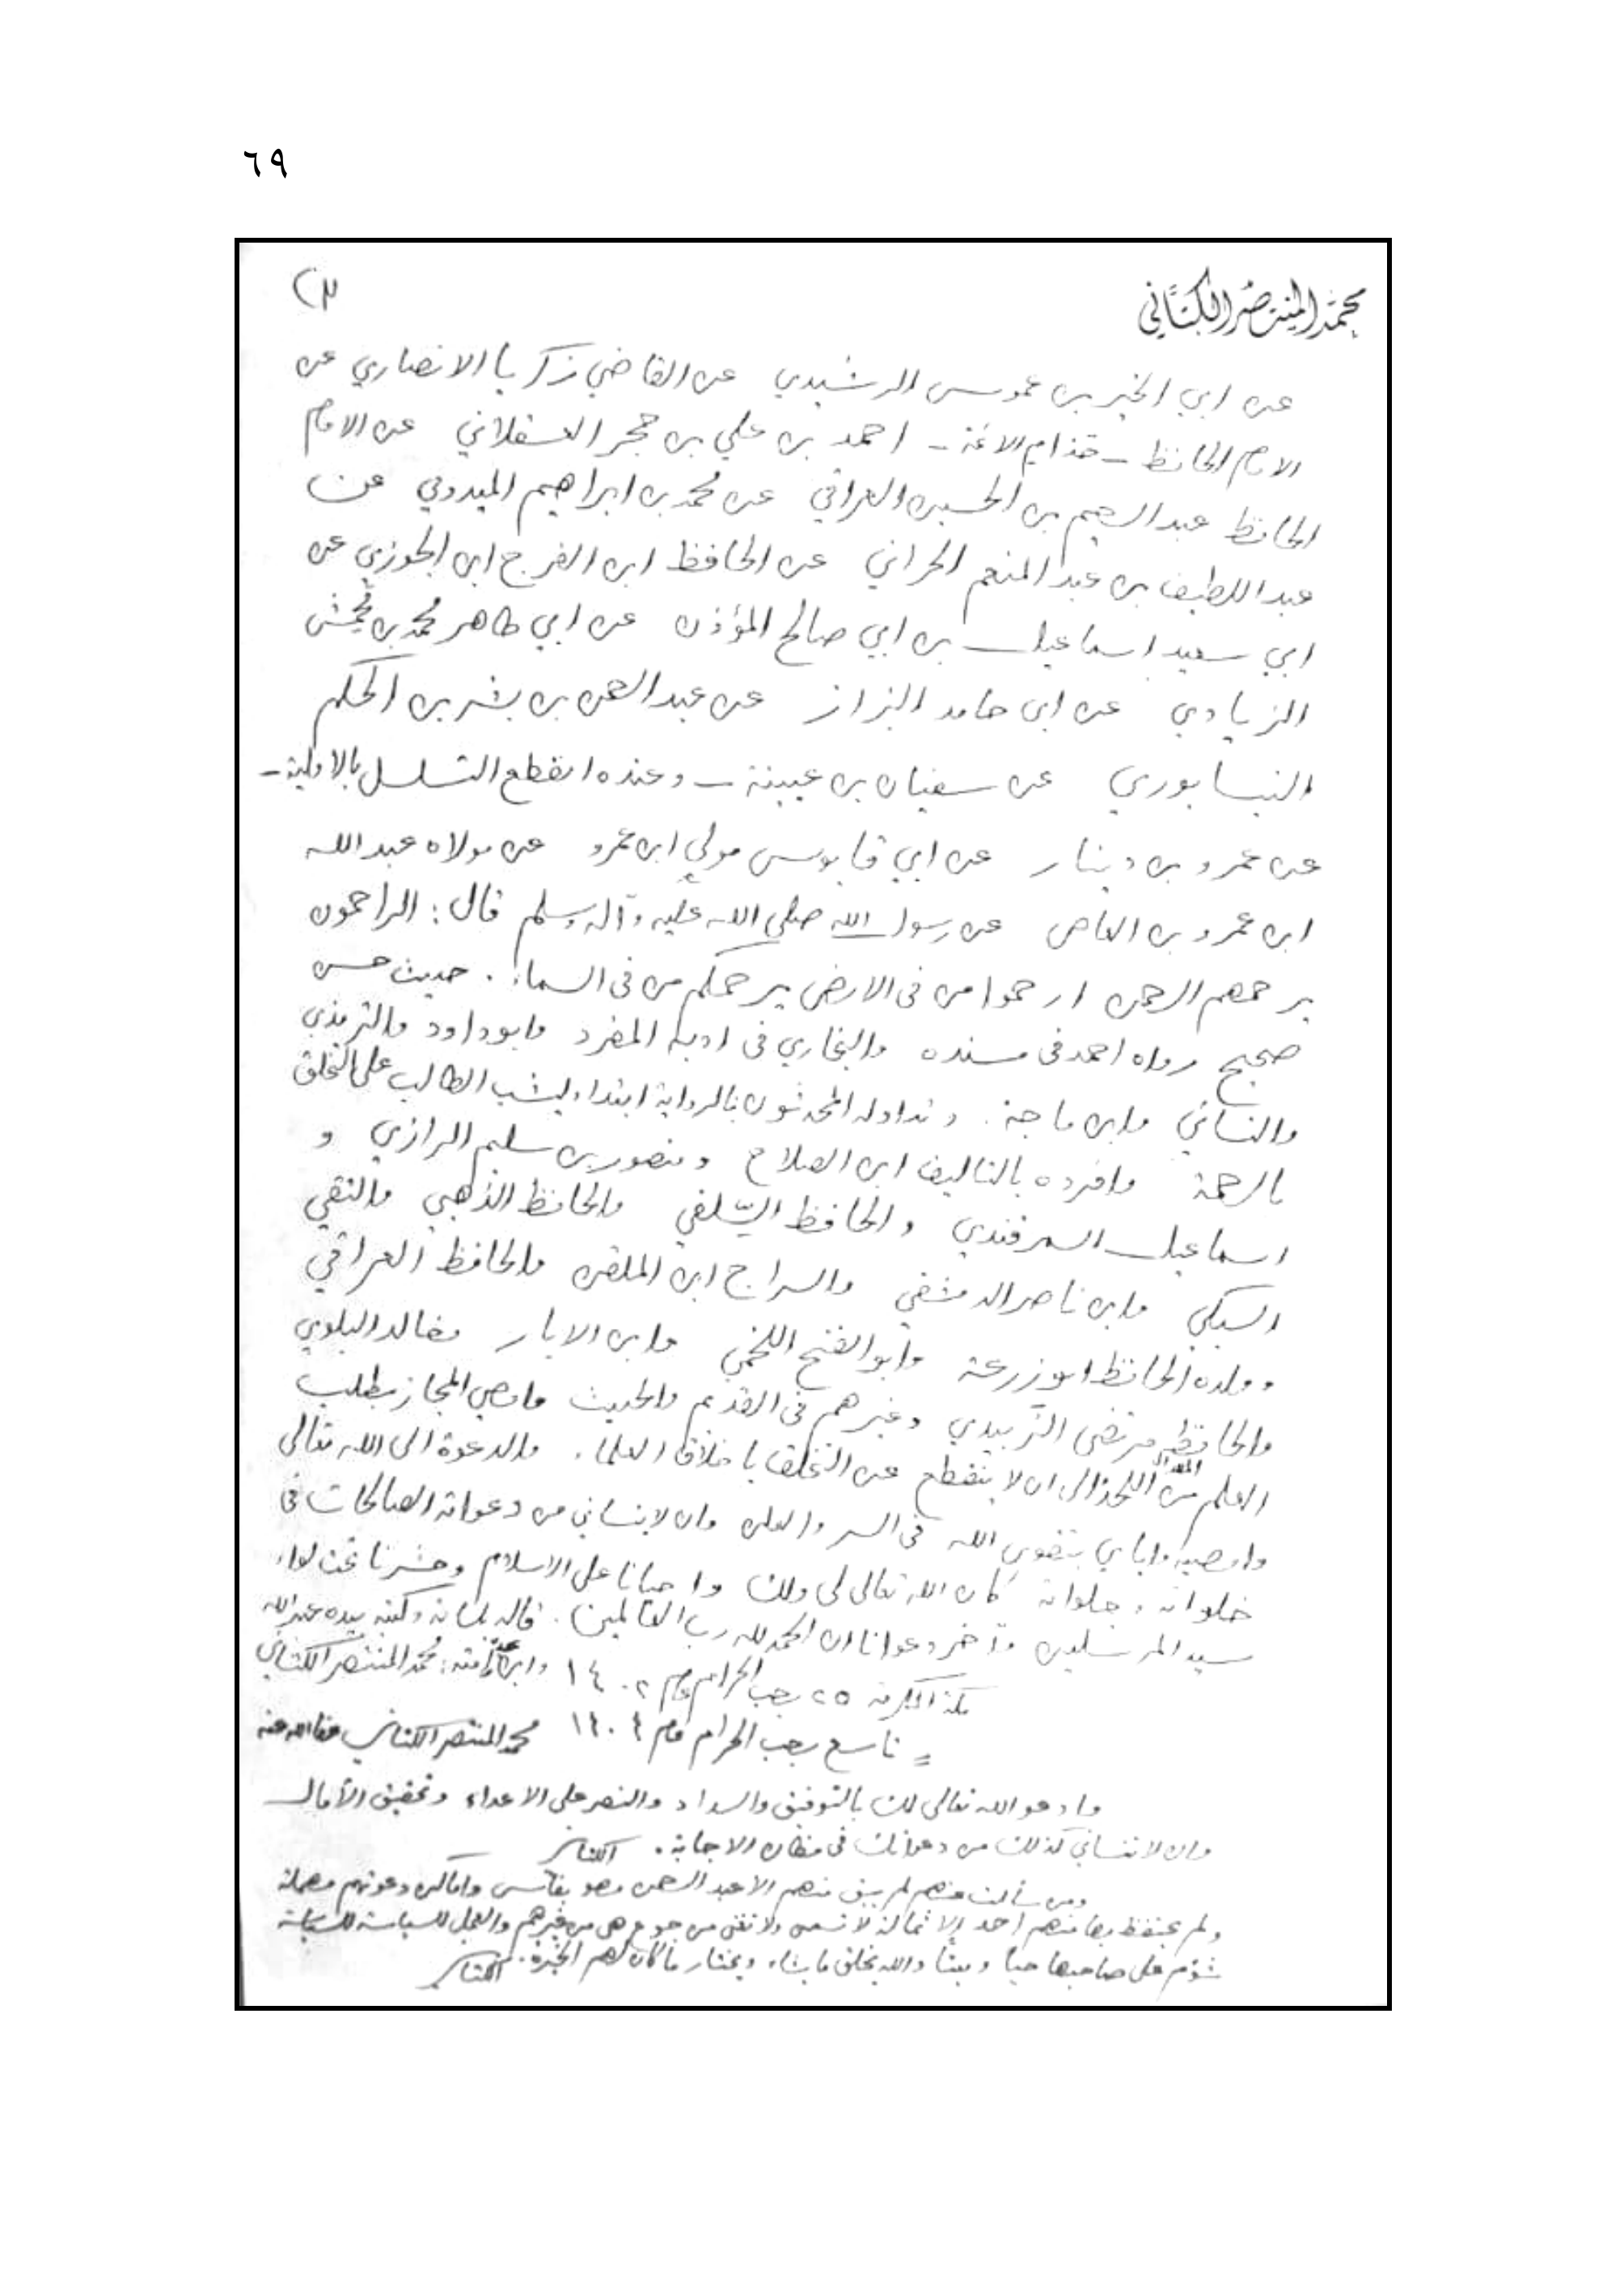 ٦٩
محمد المنتصر الكتاني
(٣
عن ابي الخير بن عموس الرشيدي عن القاضي زكريا الانصاري عن
الامام الحافظ - الائمة - احمد بن علي بن حجر العسقلاني عن الامام
الحافظ عبد الرحيم بن الحسين العراقي عن محمد بن ابراهيم الميدومي عن
عبد اللطيف بن عبد المنعم الحراني عن الحافظ ابن الفرج ابن الجوزي عن
ابي سعيد اسماعيل بن ابي صالح المؤذن عن ابي طاهر محمد بن محمش
الزيادي عن ابي حامد البزاز عن عبد الرحمن بن بشر بن الحكم
النيسابوري عن سفيان بن عيينة - وعنده انقطع التسلسل بالاولية -
عن عمرو بن دينار عن ابي قابوس مولى ابن عمرو عن مولاه عبد الله
ابن عمرو بن العاص عن رسول الله صلى الله عليه وآله وسلم قال: الراحمون
يرحمهم الرحمن ارحموا من في الارض يرحمكم من في السماء. حديث حسن
صحيح رواه احمد في مسنده والبخاري في ادبه المفرد وابو داود والترمذي
والنسائي وابن ماجة. وتداوله المحدثون بالرواية ابتداء ليشب الطالب على التخلق
بالرحمة وافرده بالتاليف ابن الصلاح ومنصور بن سليم الرازي و
اسماعيل السمرقندي والحافظ السِّلفي والحافظ الذهبي والتقي
السبكي وابن ناصر الدمشقي والسراج ابن الملقن والحافظ العراقي
وولده الحافظ ابو زرعة وأبو الفتح اللخمي وابن الابار وخالد البلوي
والحافظ مرتضى الزَّبيدي وغيرهم في القديم والحديث واوصي المجاز بطلب
العلم من المهد الى اللحد والى ان لا ينقطع عن التخلق باخلاق العلماء. والدعوة الى الله تعالى
واوصيه واياي بتقوى الله في السر والعلن وان لا ينساني من دعواته الصالحات في
خلواته وجلواته كان الله تعالى لي وله واحيانا على الاسلام وحشرنا تحت لواء
سيد المرسلين وآخر دعوانا ان الحمد لله رب العالمين. قاله بلسانه وكتبه بيده عبد الله
وابن عبده وأمته: محمد المنتصر الكتاني
مكة المكرمة ٢٥ رجب الحرام عام ١٤٠٢
= تاسع رجب الحرام عام ١٤٠٤ محمد المنتصر الكتاني عفا الله عنه
وادعو الله تعالى لك بالتوفيق والسداد والنصر على الاعداء وتحقيق الآمال
وان لا تنساني كذلك من دعواتك في مظان الاجابة. الكتاني
ومن سألت عنهم لم يبق منهم الا عبد الرحمن وهو بفاس
ولم يحتفظ بها منهم احد إلا ثمالة لا تسمن ولا تغني من جوع هي من غيرهم والعمل للسياسة
شؤم على صاحبها حيا وميتا والله يخلق ما يشاء ويختار ما كان لهم الخيرة. الكتاني